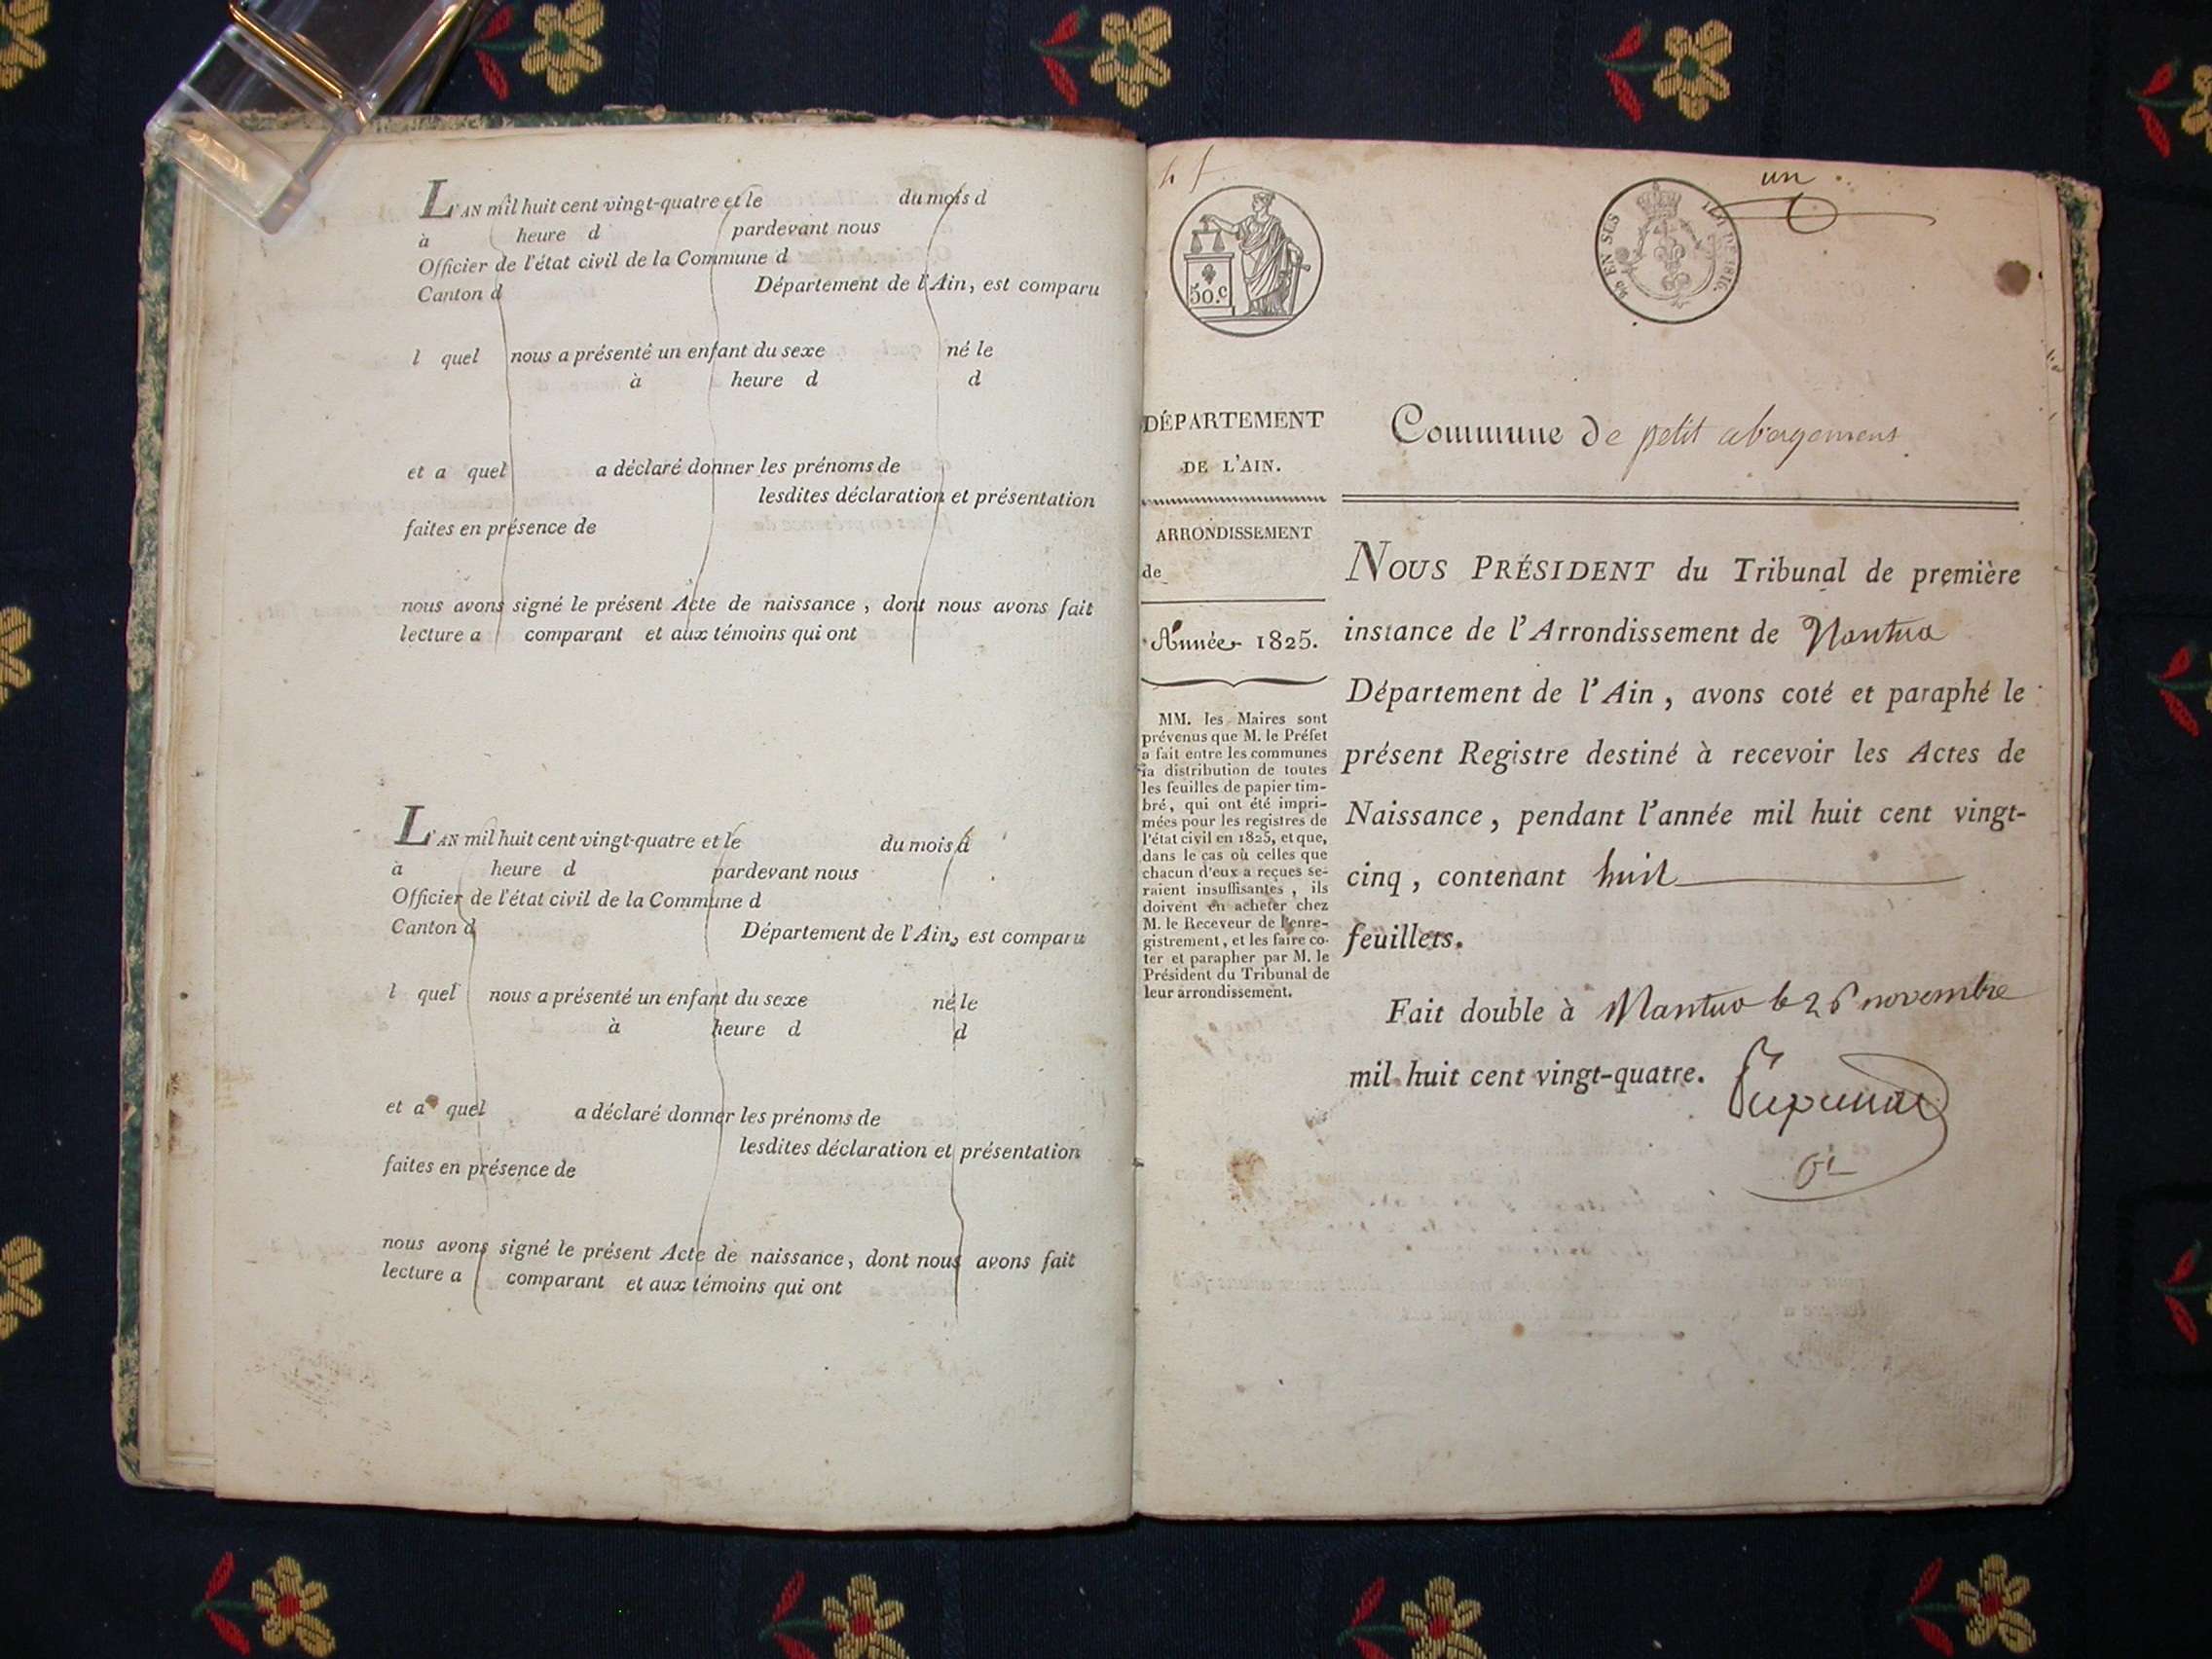 L'AN mil huit cent vingt-quatre et le du mois d
à heure d pardevant nous
Officier de l'état civil de la Commune d
Canton d Département de l'Ain, est comparu
l quel nous a présenté un enfant du sexe né le
à heure d d
et a quel a déclaré donner les prénoms de
lesdites déclaration et présentation
faites en présence de
nous avons signé le présent Acte de naissance, dont nous avons fait
lecture a comparant et aux témoins qui ont
L'AN mil huit cent vingt-quatre et le du mois d
à heure d pardevant nous
Officier de l'état civil de la Commune d
Canton d Département de l'Ain, est comparu
l quel nous a présenté un enfant du sexe né le
à heure d d
et a quel a déclaré donner les prénoms de
lesdites déclaration et présentation
faites en présence de
nous avons signé le présent Acte de naissance, dont nous avons fait
lecture a comparant et aux témoins qui ont
un
50.c
EN SUS DE 1816.
DÉPARTEMENT
DE L'AIN.
ARRONDISSEMENT
de
Année 1825.
MM. les Maires sont
prévenus que M. le Préfet
a fait entre les communes
la distribution de toutes
les feuilles de papier tim-
bré, qui ont été impri-
mées pour les registres de
l'état civil en 1825, et que,
dans le cas où celles que
chacun d'eux a reçues se-
raient insuffisantes, ils
doivent en acheter chez
M. le Receveur de l'enre-
gistrement, et les faire co-
ter et parapher par M. le
Président du Tribunal de
leur arrondissement.
Commune de petit abergement
NOUS PRÉSIDENT du Tribunal de première
instance de l'Arrondissement de Nantua
Département de l'Ain, avons coté et paraphé le
présent Registre destiné à recevoir les Actes de
Naissance, pendant l'année mil huit cent vingt-
cinq, contenant huit
feuillets.
Fait double à Nantua le 26 novembre
mil huit cent vingt-quatre.